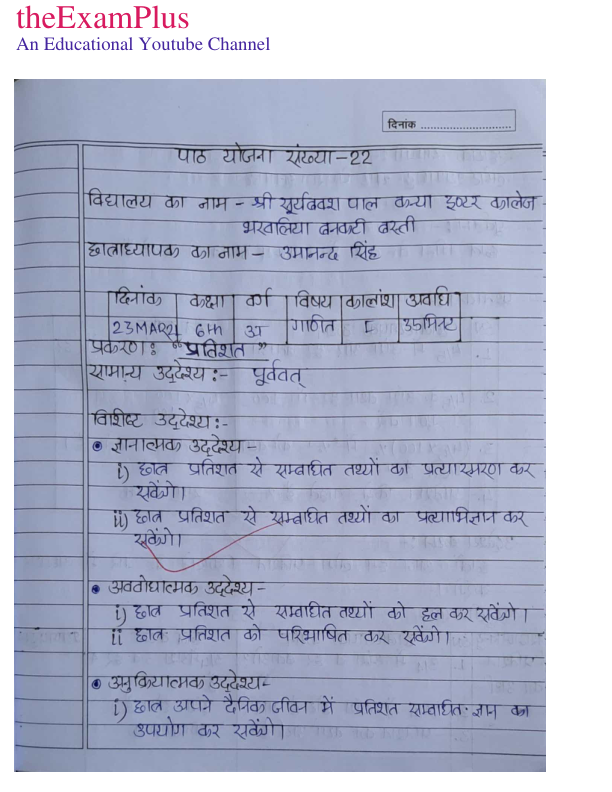 theExamPlus
An Educational Youtube Channel
दिनांक ..............................
पाठ योजना संख्या-22
विद्यालय का नाम - श्री सूर्यबक्श पाल कन्या इण्टर कालेज
बनकटी बस्ती
छात्राध्यापक का नाम - उमानन्द सिंह
दिनांक कक्षा वर्ग विषय कालांश अवधि
23MAR21 6th अ गणित I 35मिनट
प्रकरण: "प्रतिशत"
सामान्य उद्देश्य:- पूर्ववत्
विशिष्ट उद्देश्य:-
• ज्ञानात्मक उद्देश्य -
i) छात्र प्रतिशत से सम्बंधित तथ्यों का प्रत्यास्मरण कर
सकेंगे।
ii) छात्र प्रतिशत से सम्बंधित तथ्यों का प्रत्याभिज्ञान कर
सकेंगे।
• अवबोधात्मक उद्देश्य -
i) छात्र प्रतिशत से सम्बंधित तथ्यों को हल कर सकेंगे।
ii छात्र प्रतिशत को परिभाषित कर सकेंगे।
• अनुक्रियात्मक उद्देश्य-
i) छात्र अपने दैनिक जीवन में प्रतिशत सम्बंधित ज्ञान का
उपयोग कर सकेंगे।